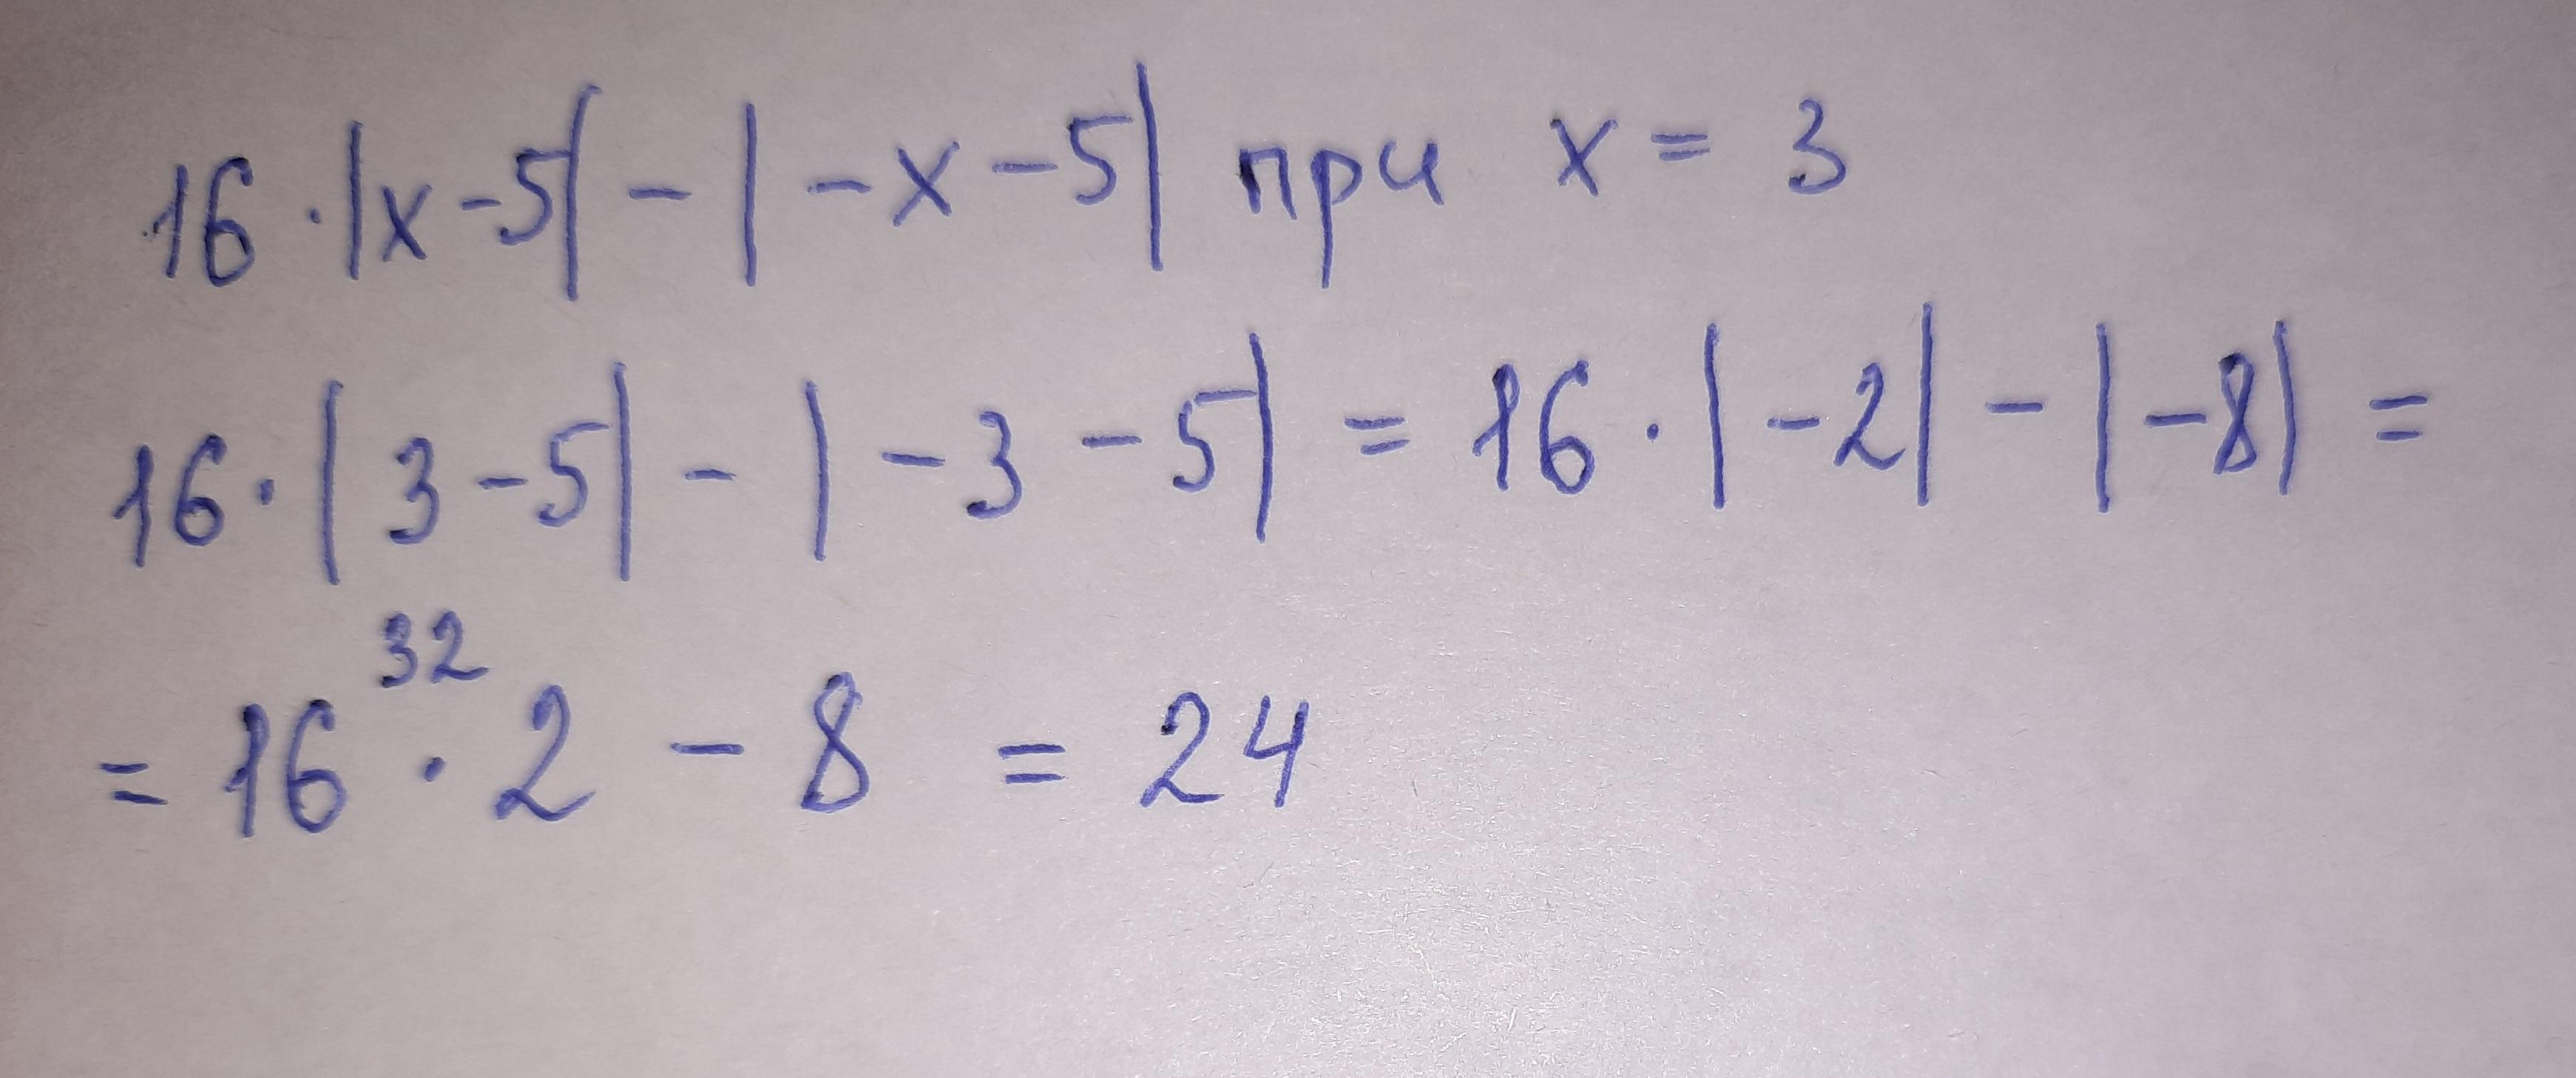 16 · |x - 5| - | - x - 5| при x = 3
16 · | 3 - 5| - | - 3 - 5| = 16 · | - 2| - | - 8| =
32
= 16 · 2 - 8 = 24